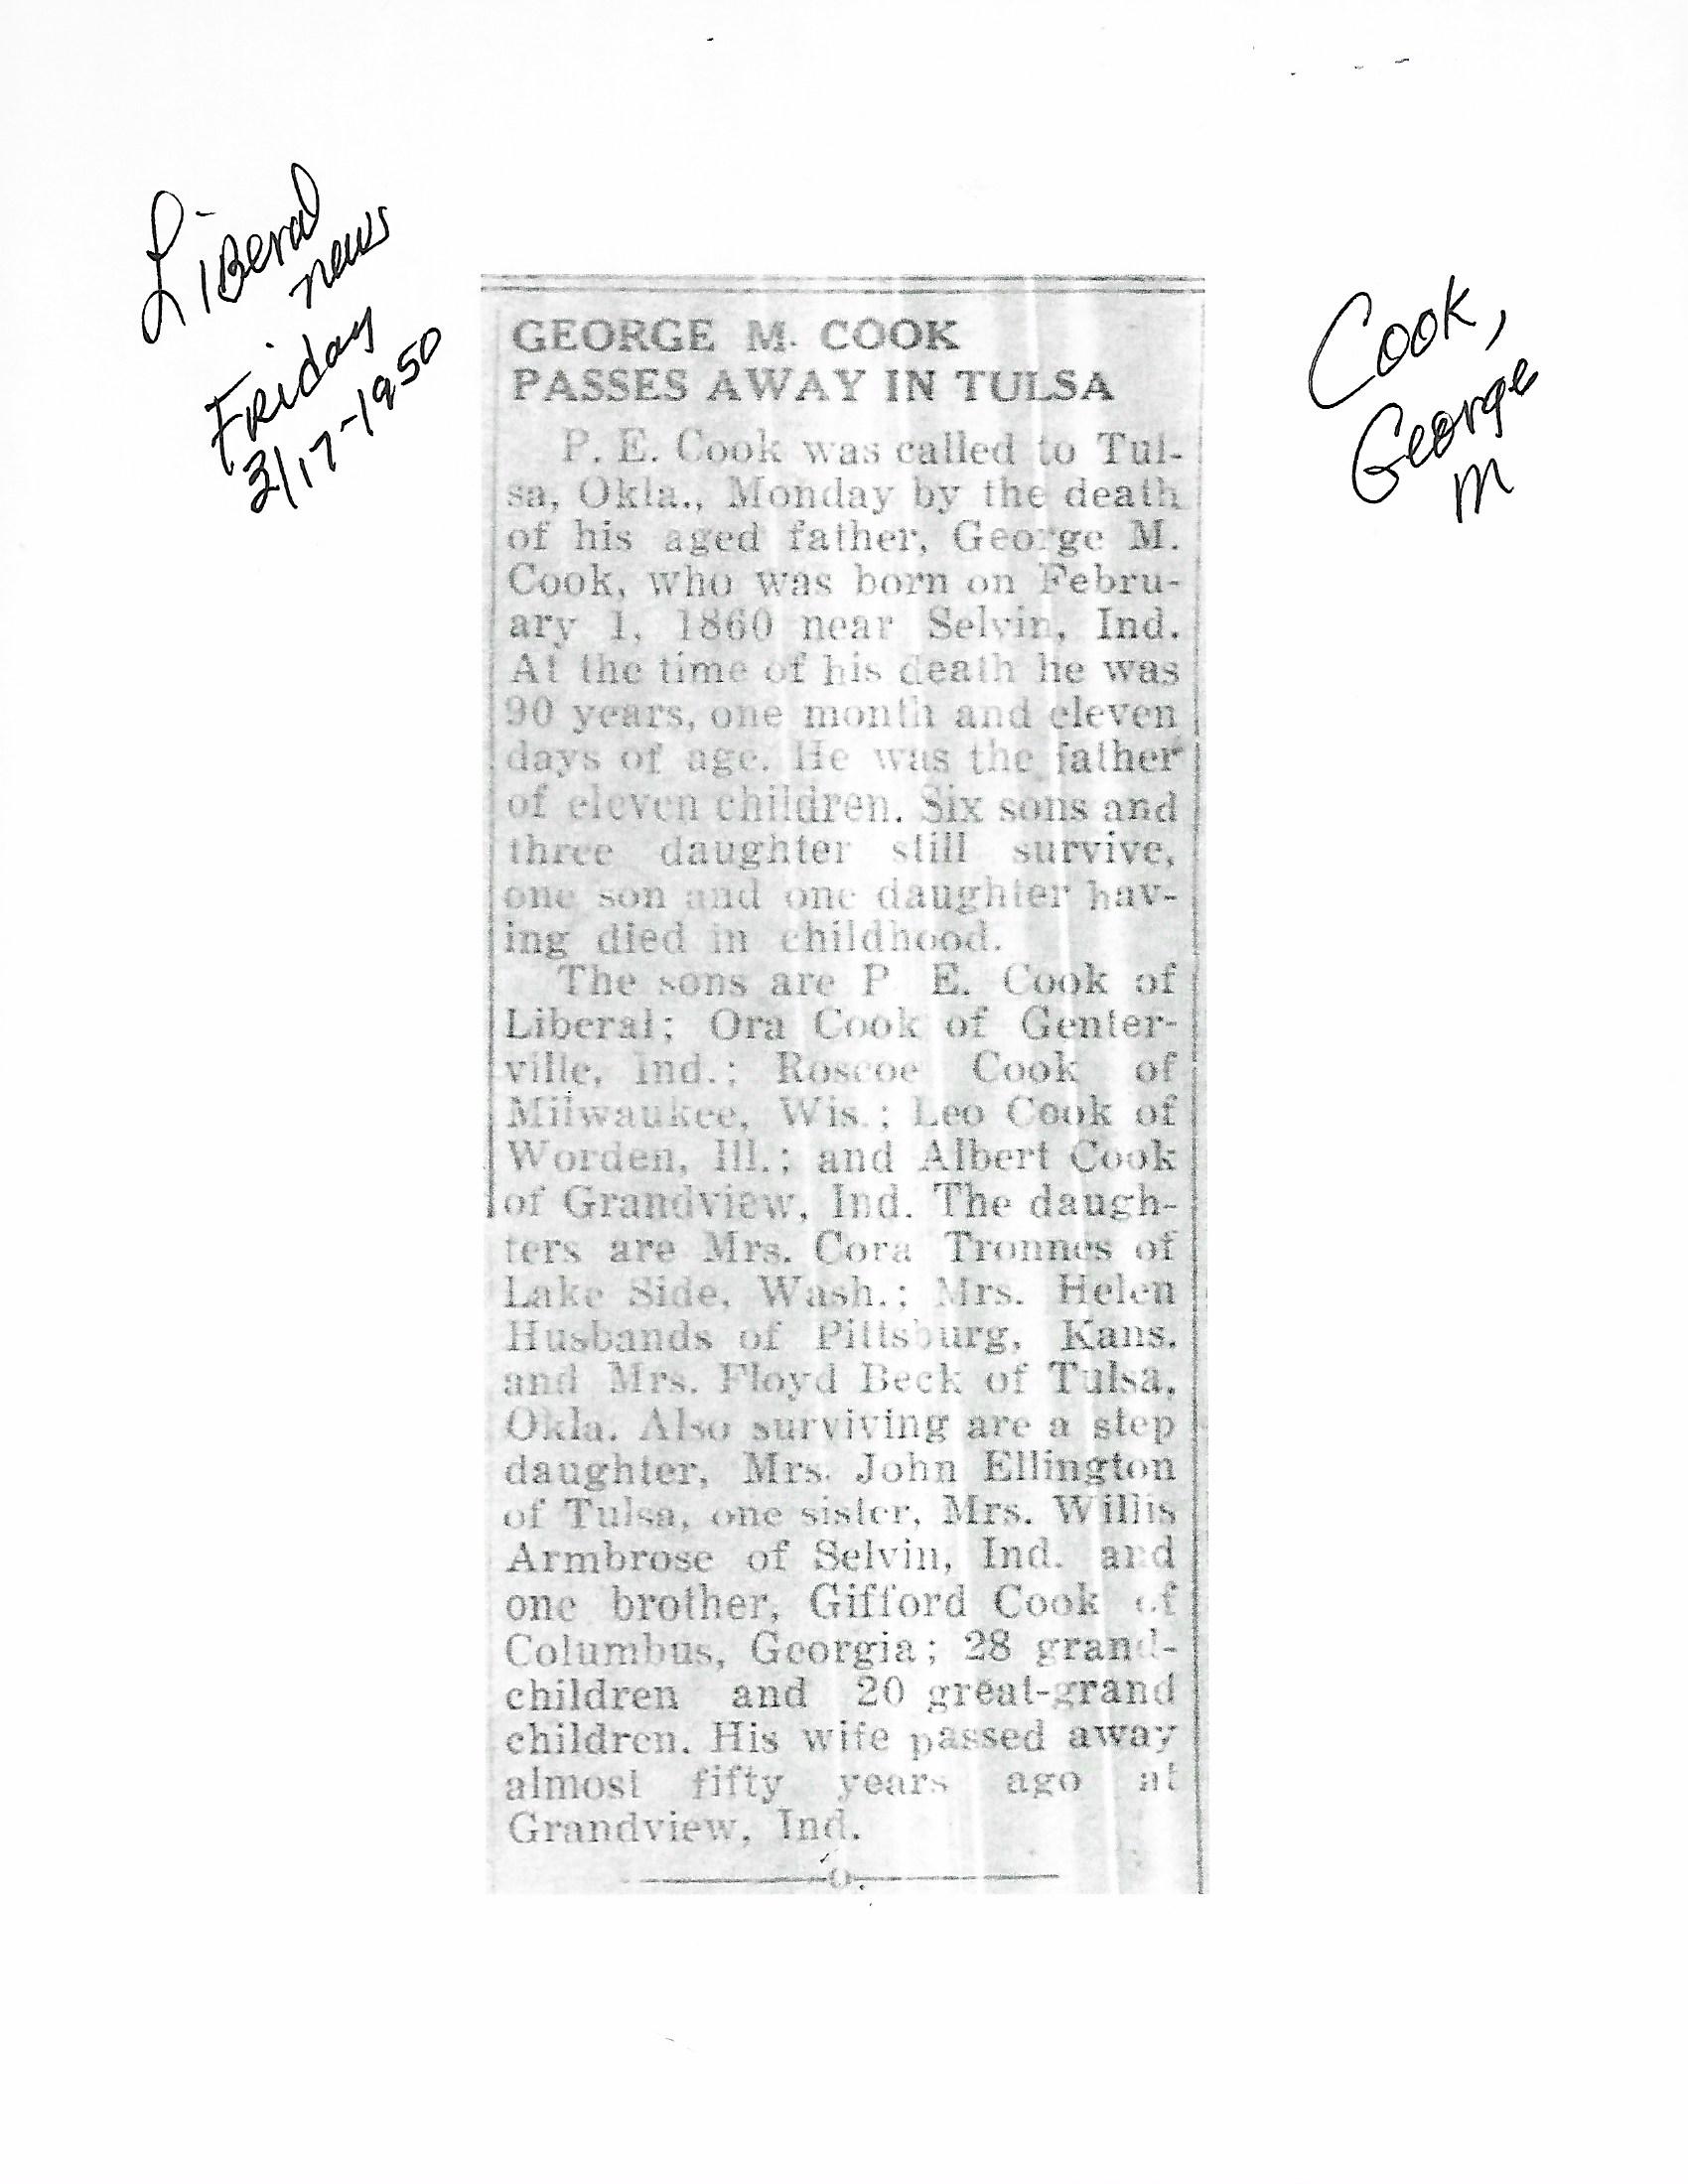 Liberal
news
Friday
3/17-1950
Cook,
George
M
GEORGE M. COOK
PASSES AWAY IN TULSA
P. E. Cook was called to Tul-
sa, Okla., Monday by the death
of his aged father, George M.
Cook, who was born on Febru-
ary 1, 1860 near Selvin, Ind.
At the time of his death he was
90 years, one month and eleven
days of age. He was the father
of eleven children. Six sons and
three daughter still survive,
one son and one daughter hav-
ing died in childhood.
The sons are P E. Cook of
Liberal; Ora Cook of Genter-
ville, Ind.; Roscoe Cook of
Milwaukee, Wis.; Leo Cook of
Worden, Ill.; and Albert Cook
of Grandview, Ind. The daugh-
ters are Mrs. Cora Tronnes of
Lake Side, Wash.; Mrs. Helen
Husbands of Pittsburg, Kans.
and Mrs. Floyd Beck of Tulsa,
Okla. Also surviving are a step
daughter, Mrs. John Ellington
of Tulsa, one sister, Mrs. Willis
Armbrose of Selvin, Ind. and
one brother, Gifford Cook of
Columbus, Georgia; 28 grand-
children and 20 great-grand
children. His wife passed away
almost fifty years ago at
Grandview, Ind.